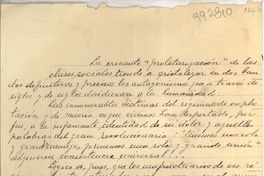 992810
La creciente "proletarización" de las
clases sociales tiende a cristalizar en dos ban
dos definitivos y precisos los antagonismos que a través de
siglos y de siglos dividieron a la humanidad.
Las innumerables víctimas del régimen de explo
tación y de miseria en que vivimos han despertado, por
fin, a la infamante identidad de su dolor, y aquellas
palabras del gran revolucionario:
adquieren consistencia universal...
Lógico es, pues, que los usufructuarios de ese ré